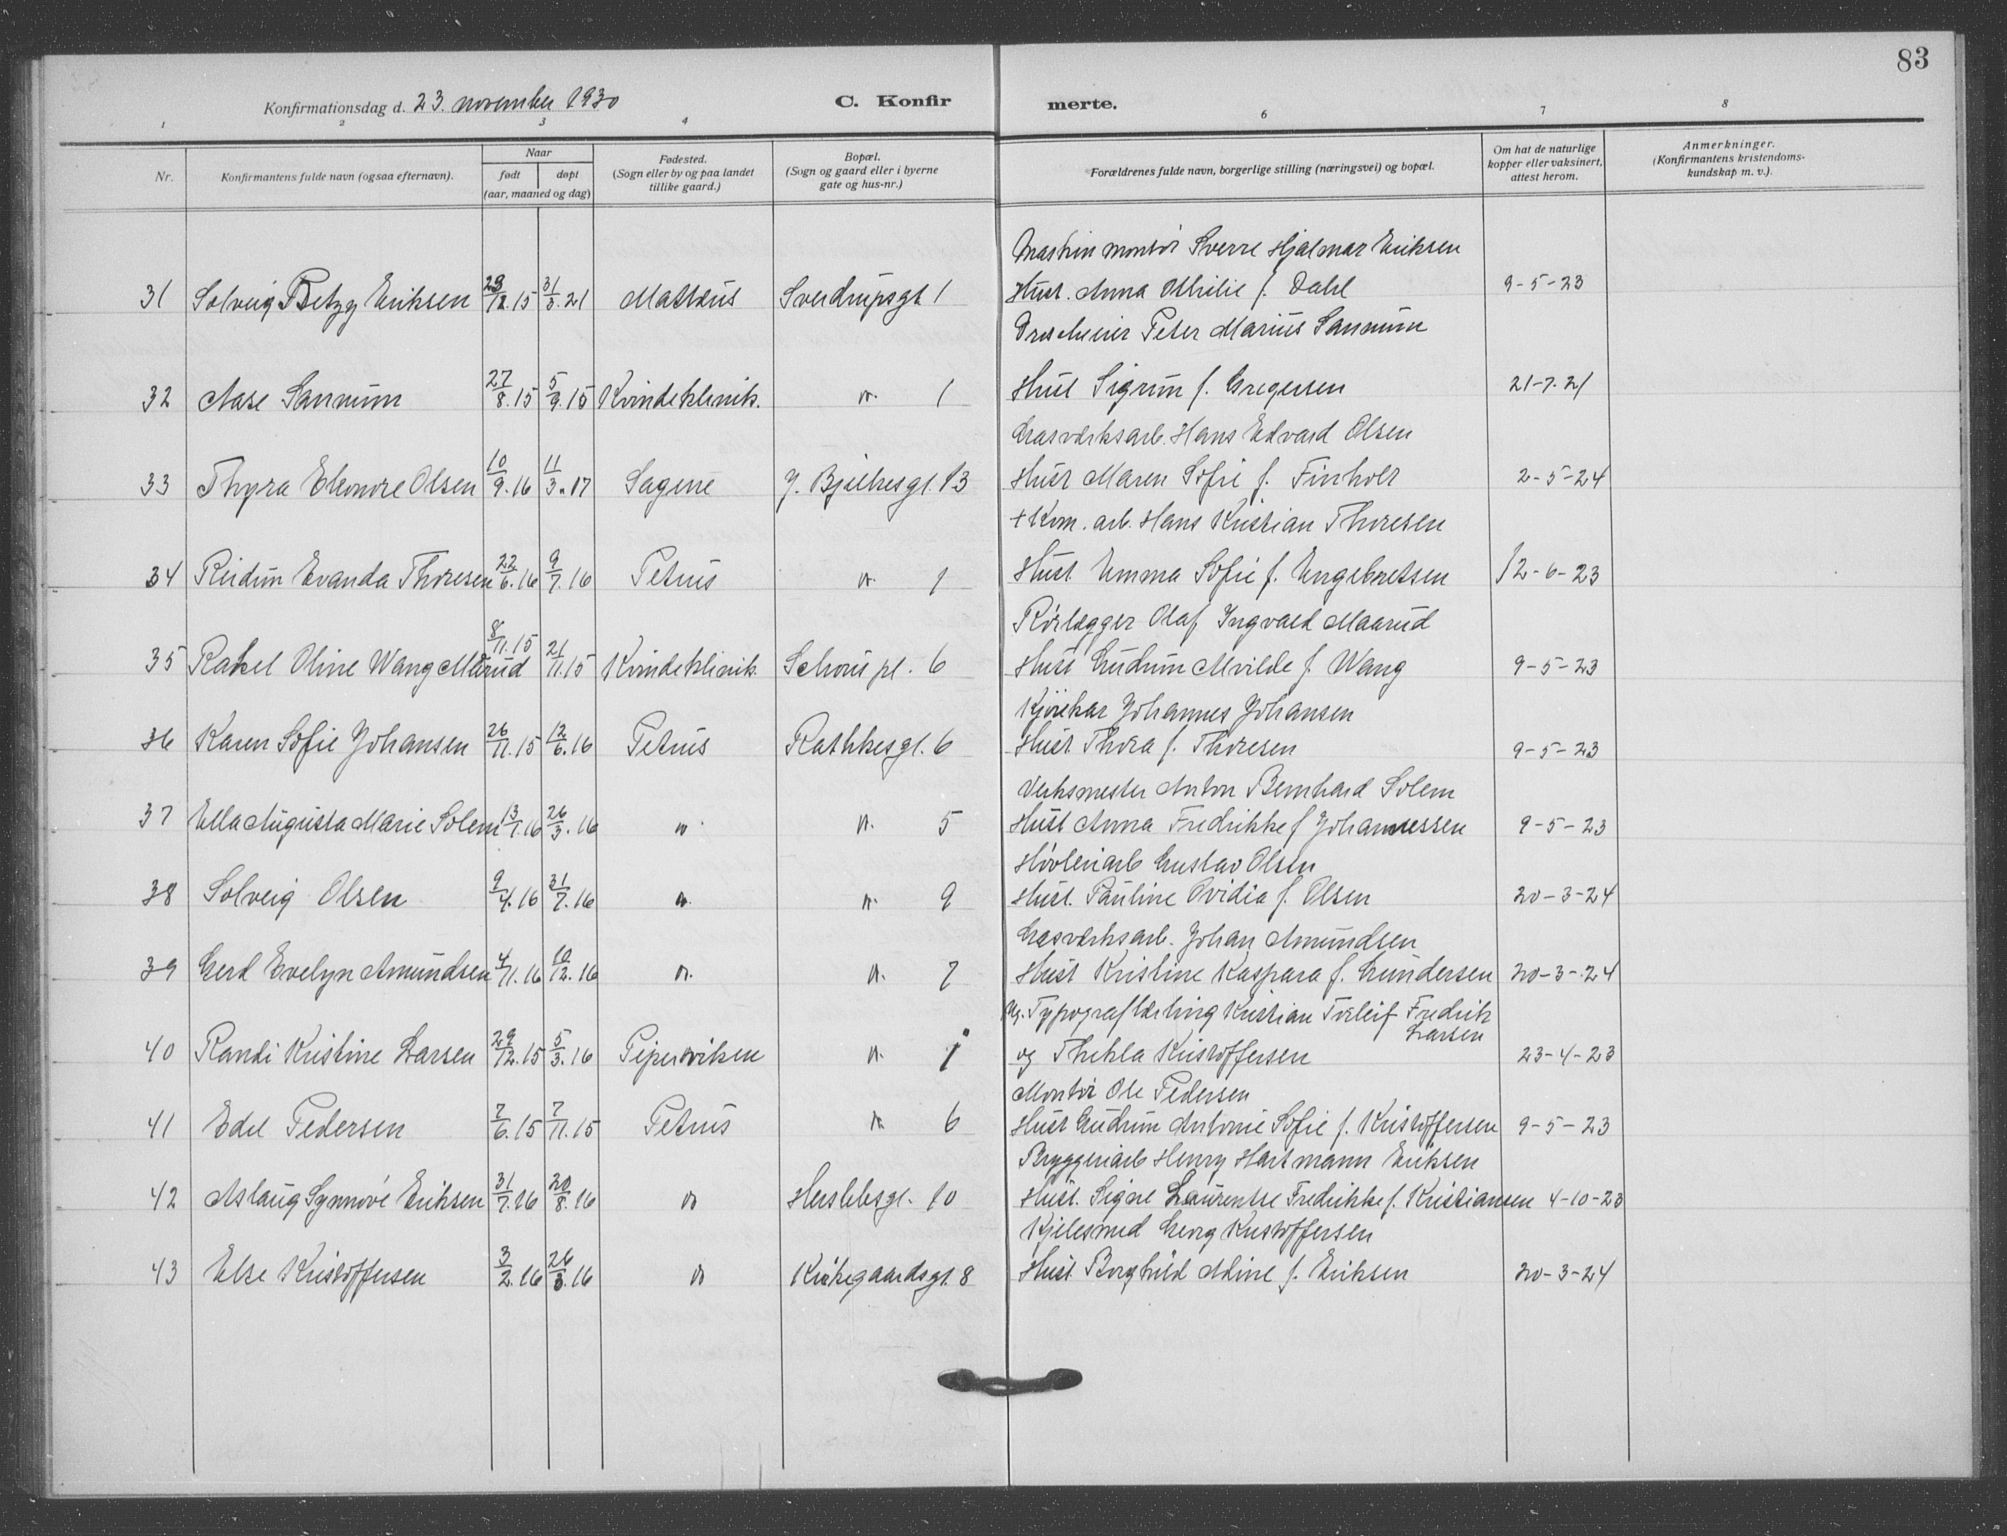 83
Konfirmationsdag d. 23. november 1930
C. Konfir merte.
1 2 3 4 6 7 8
Nr.
Konfirmantens fulde navn (ogsaa efternavn).
Naar
født døpt
(aar, maaned og dag)
Fødested.
(Sogn eller by og paa landet
tillike gaard.)
Bopæl.
(Sogn og gaard eller i byerne
gate og hus-nr.)
Forældrenes fulde navn, borgerlige stilling (næringsvei) og bopæl.
Om hat de naturlige
kopper eller vaksinert,
attest herom.
Anmerkninger.
(Konfirmantens kristendoms-
kundskap m. v.).
Maskin montør Sverre Hjalmar Eriksen
31 Solveig Betzy Eriksen 23/12.15 31/3.21 Mattæus Sverdrupsgt 1 Hust. Anna Othilie f. Dahl 9-5-23
Peter Marius Sannum
32 Aase Sannum 27/8.15 5/9.15 Kvindeklinik. n. 1 Hust Sigrun f. Gregersen 21-7-21
Gasværksarb. Hans Edvard Olsen
33 Thyra Eleonore Olsen 10/9.16 11/3.17 Sagene J. Bjelkesgt. 13 Hust Maren Sofie f. Finholt 2-5-24
+ Kom. arb. Hans Kristian Thoresen
34 Reidun Evanda Thoresen 22/6.16 9/7.16 Petrus n. 1 Hust Emma Sofie f. Engebretsen 12-6-23
Rørlægger Olaf Ingvald Maarud
35 Rakel Oline Wang Mårud 8/11.15 21/11.15 Kvindeklinik. Schous pl. 6 Hust Gudrun Alvilde f. Wang 9-5-23
Kjørekar Johannes Johansen
36 Karen Sofie Johansen 26/11.15 12/6.16 Petrus Rathkesgt. 6 Hust Thora f. Thoresen 9-5-23
Verksmester Anton Bernhard Solem
37 Ella Augusta Marie Solem 13/1.16 26/3.16 n. n. 5 Hust Anna Fredrikke f Johannessen 9-5-23
Høvleriarb Gustav Olsen
38 Solveig Olsen 9/4.16 31/7.16 n. n. 9 Hust. Pauline Ovidia f. Olsen 20-3-24
Gasværksarb. Johan Amundsen
39 Gerd Evelyn Amundsen 4/11.16 10/12.16 n. n. 7 Hust Kristine Kaspara f. Gundersen 20-3-24
Ug. Typograflærling Kristian Torleif Fredrik
Larsen
40 Randi Kristine Larsen 29/12.15 5/3.16 Piperviken n. 1 og Thekla Kristoffersen 23-4-23
Montør Ole Pedersen
41 Edel Pedersen 7/6.15 7/11.15 Petrus n. 6 Hust Gudrun Antonie Sofie f. Kristoffersen 9-5-23
Bryggeriarb Henry Hartmann Eriksen
42 Aslaug Synnøve Eriksen 31/7.16 20/8.16 n Herslebsgt. 10 Hust. Signe Laurentse Fredrikke f. Kristiansen 4-10-23
Kjelesmed Georg Kristoffersen
43 Else Kristoffersen 3/2.16 26/3.16 n Kirkegaardsgt. 8 Hust. Borghild Aline f. Eriksen 20-3-24